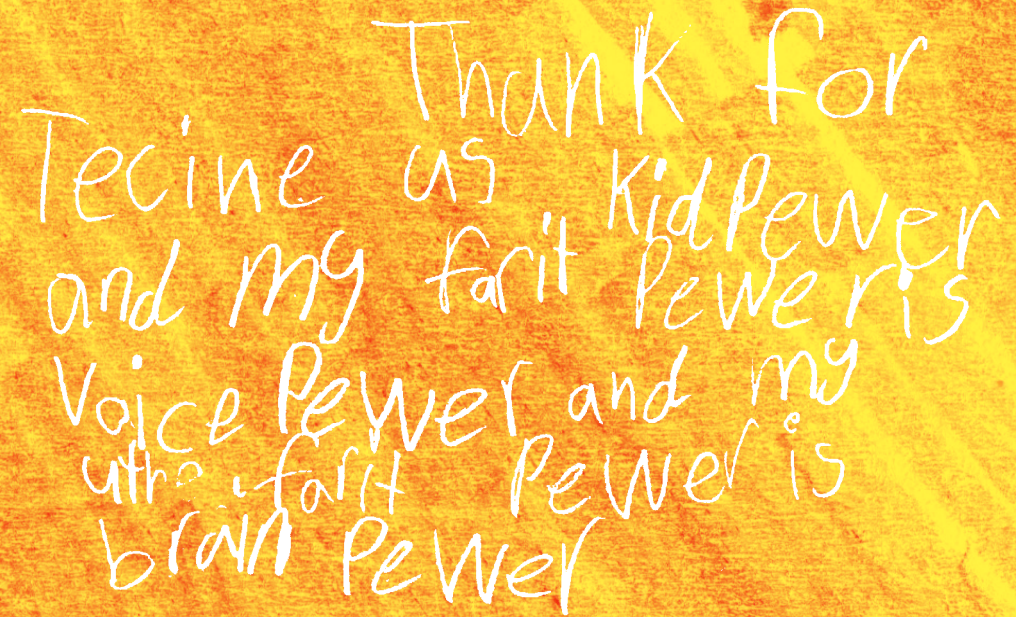 Thank for
Tecine us KidPewer
and my farit Pewer is
Voice Pewer and my
uthe farit Pewer is
brain Pewer